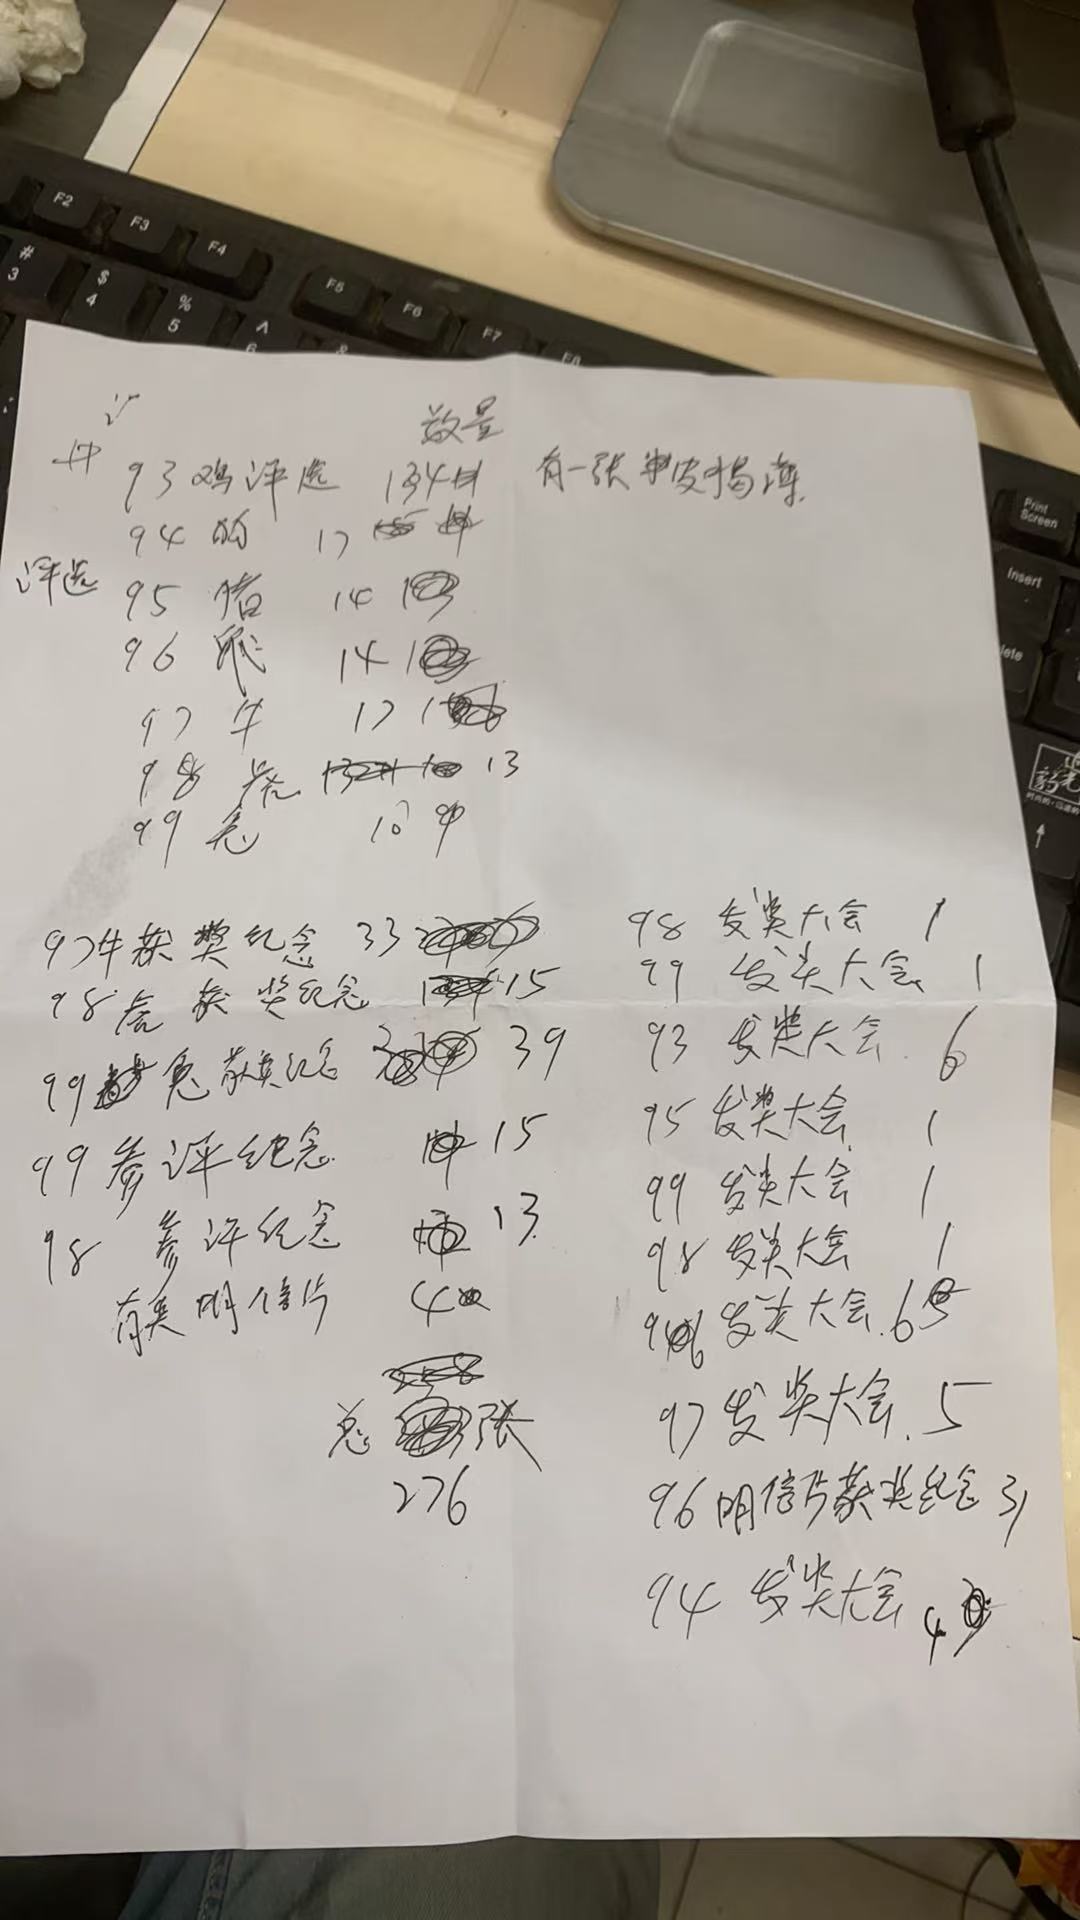 F2 F3 F4 F5 F6 F7 F8
# 3 $ 4 % 5 ^ 6 &
Print Screen
Insert
数量
93 鸡评选 134 有一张 皮揭薄
94 狗 17
评选
95 猪 14
96 鼠 14
97 牛 17
98 虎 13
99 兔 10
97牛获奖纪念 33
98虎获奖纪念 15
99 兔获奖纪念 39
99 参评纪念 15
98 参评纪念 13
有奖明信片 4
总 张
276
98 发奖大会 1
99 发奖大会 1
93 发奖大会 6
95 发奖大会 1
99 发奖大会 1
98 发奖大会 1
96 发奖大会 6
97 发奖大会 5
96 明信片获奖纪念 31
94 发奖大会 4